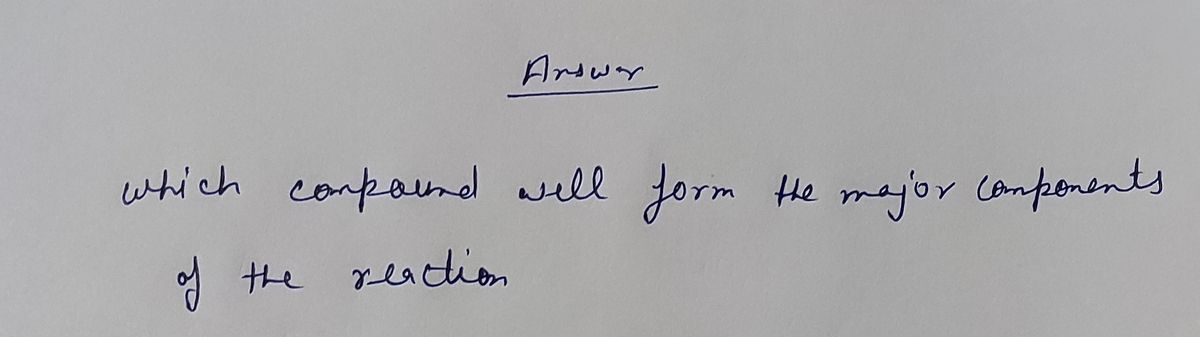 Answer
which compound well form the major components
of the reaction